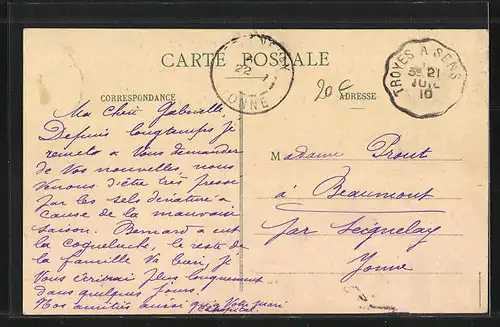 CARTE POSTALE
CORRESPONDANCE
ADRESSE
22
YONNE
TROYES A SENS
21
JUIL
10
20 c
Ma Chère Gabrielle,
Depuis longtemps je
remets a Vous demander
de Vos nouvelles, nous
Venons d'être très pressé
par les sels denature a
Cause de la mauvaise
saison. Bernard a eut
la coqueluche, le reste de
la famille Va bien, je
Vous écrirai plus longuement
dans quelques jours.
Nos amitiés ainsi qu'a Votre mari
Madame Prout
à Beaumont
par Seignelay
Yonne